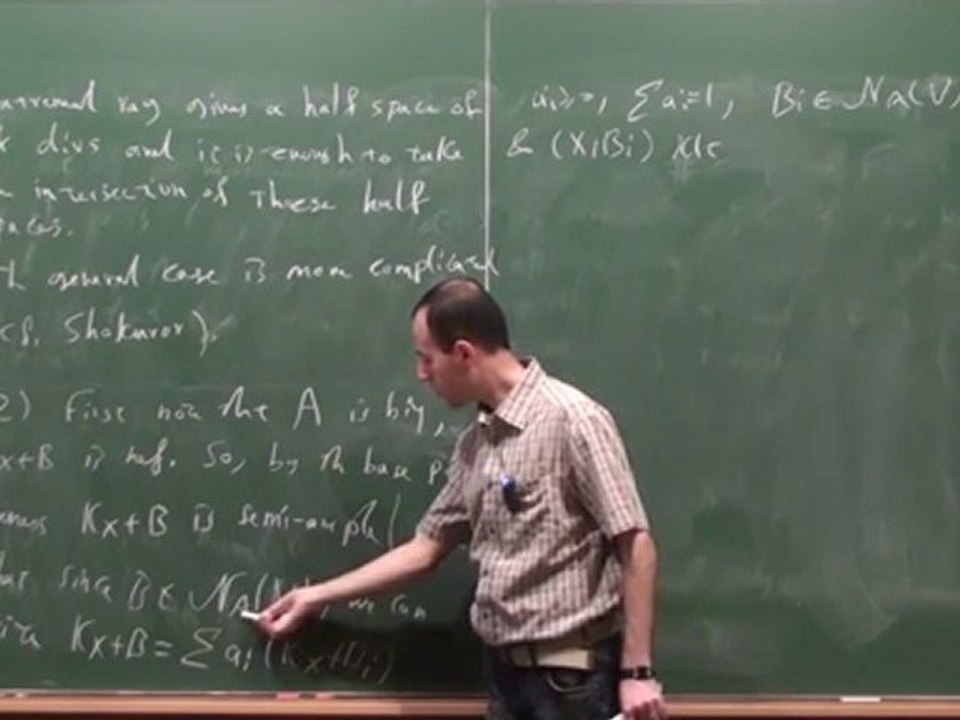 extremal ray gives a half space of
divs and it is enough to take
intersection of these half
spaces.
general case is more complicated
(cf. Shokurov).
2) First note the A is big,
Kx+B is nef. So, by th base p
Kx+B is semi-ample
since B ∈ N_A(V), we can
write Kx+B = ∑ ai (Kx+Bi)
ai ≥ 0, ∑ ai = 1, Bi ∈ N_A(V)
& (X, Bi) klt